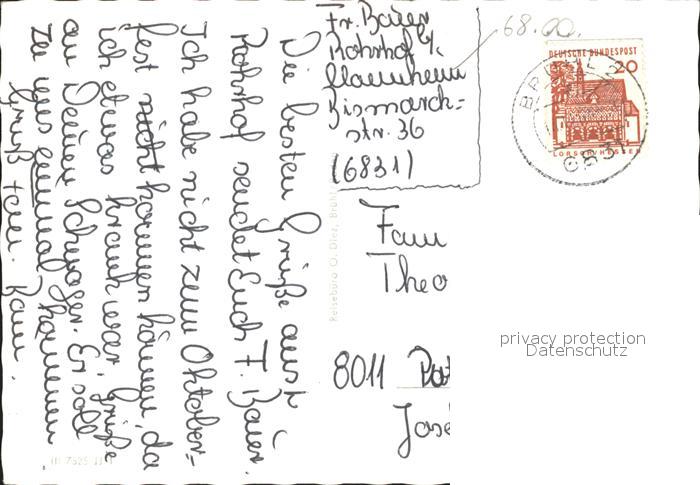 Fr. Bauer
Rohrhof b/
Mannheim
Bismarck-
str. 36
(6831)
68.00.
DEUTSCHE BUNDESPOST
20
LORSCH/HESSEN
BRÜHL
6831
Die besten Grüße aus
Rohrhof sendet Euch F. Bauer.
Ich habe nicht zum Oktober-
fest nicht kommen können, da
ich etwas krank war. Grüße
an Deinen Schwager. Er soll
zu uns einmal kommen
Gruß Fam. Bauer.
Fam
Theo
8011
Jose
Reisebüro O. Diez, Brühl
privacy protection
Datenschutz